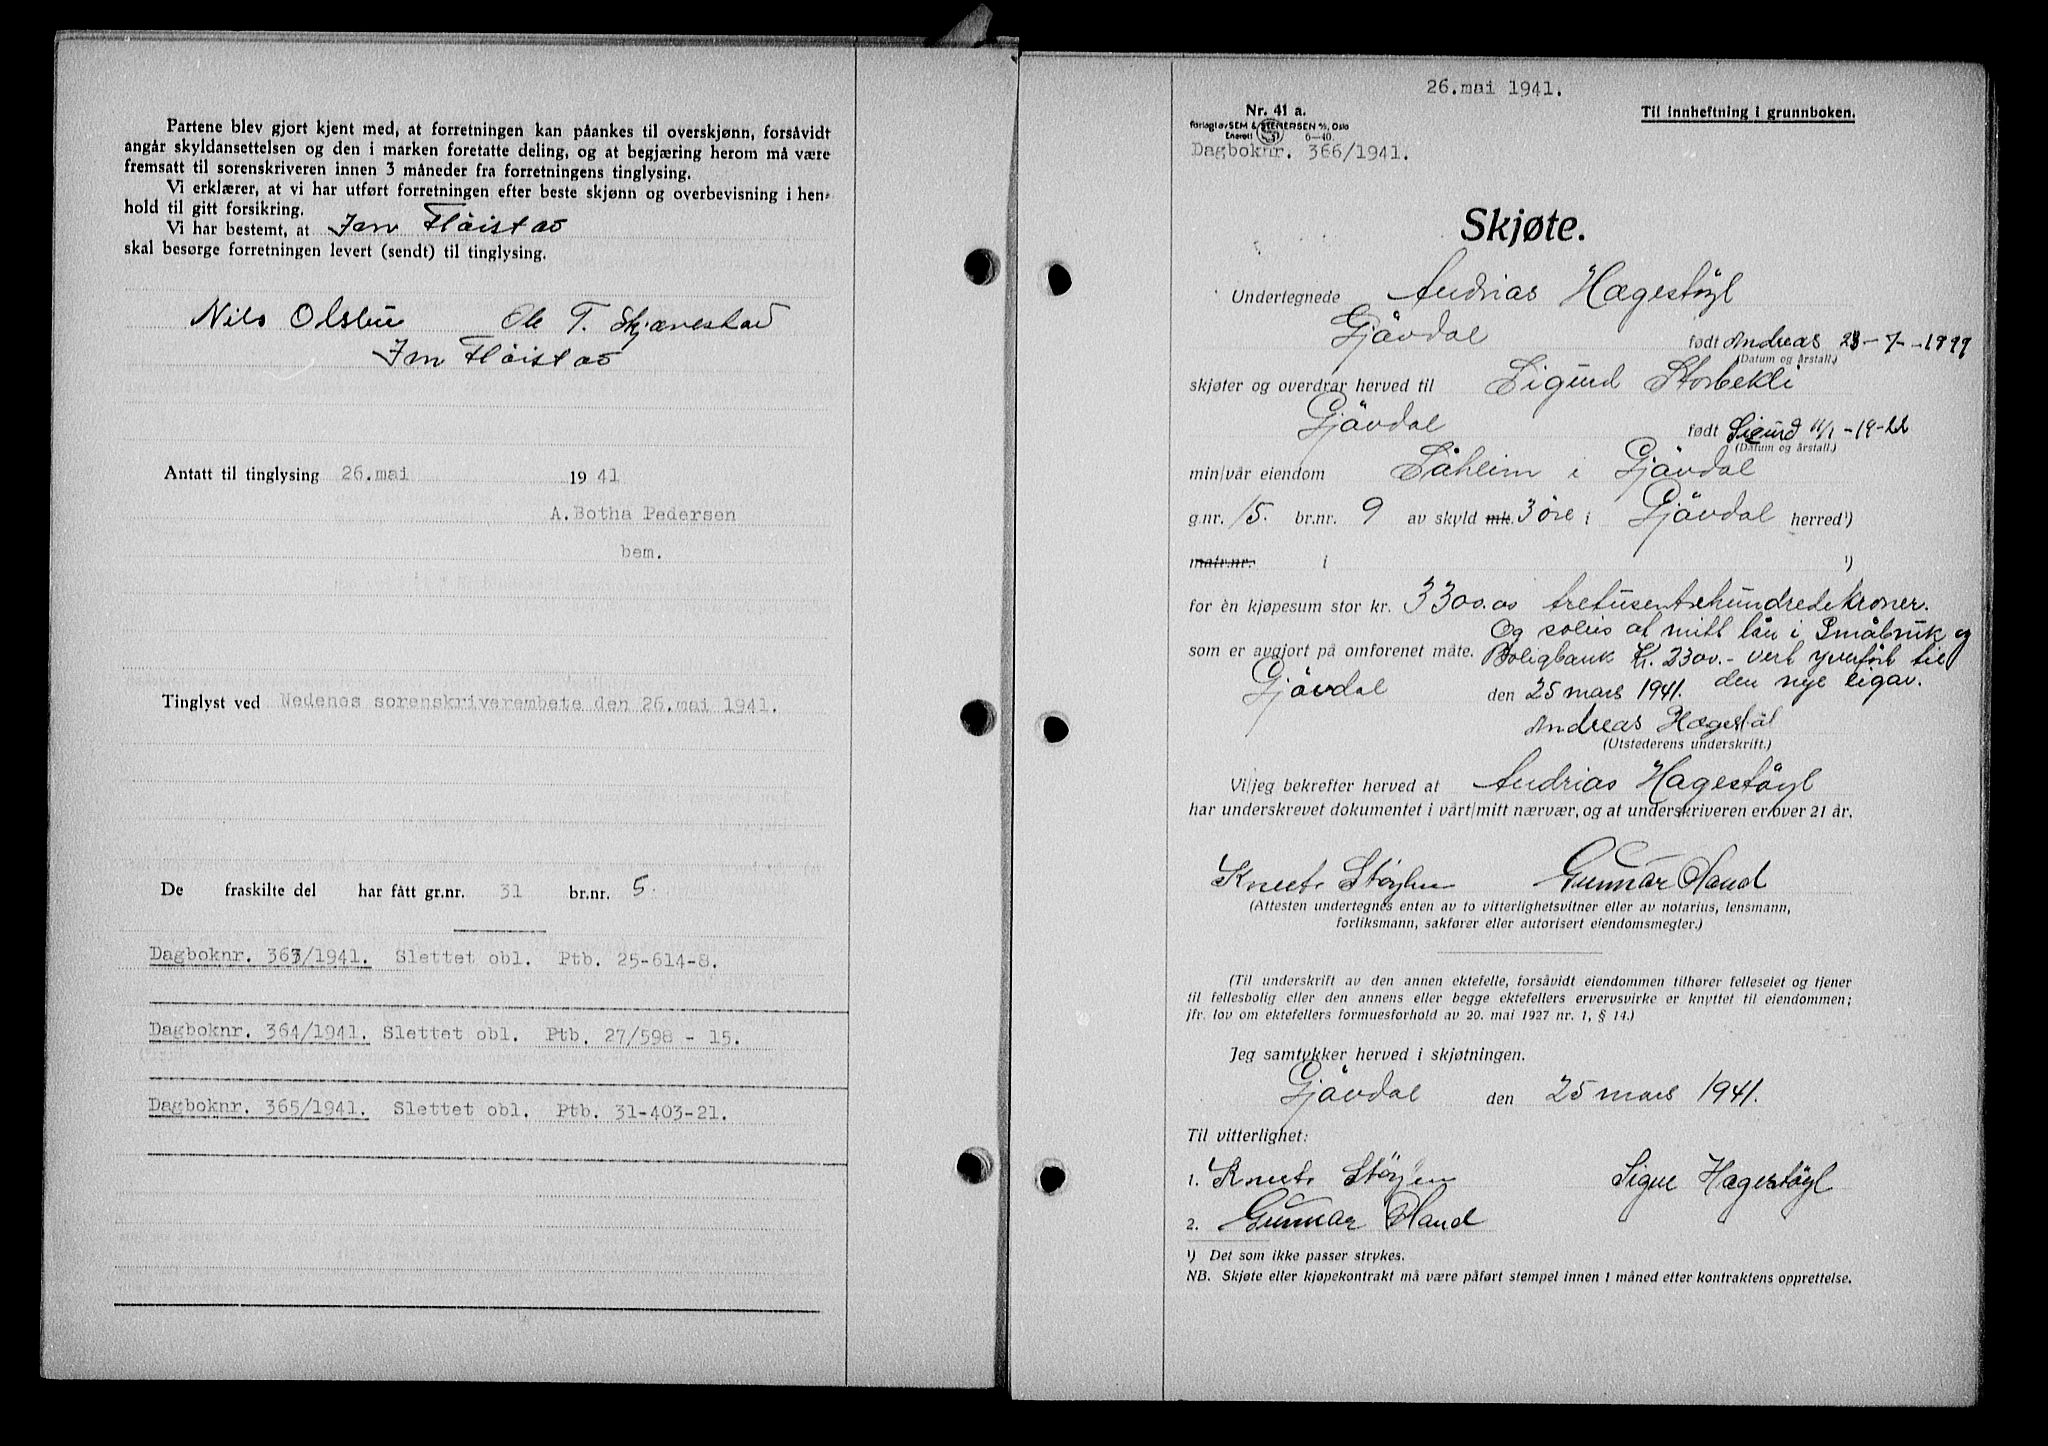 Partene blev gjort kjent med, at forretningen kan påankes til overskjønn, forsåvidt
angår skyldansettelsen og den i marken foretatte deling, og at begjæring herom må være
fremsatt til sorenskriveren innen 3 måneder fra forretningens tinglysing.
Vi erklærer, at vi har utført forretningen efter beste skjønn og overbevisning i hen-
hold til gitt forsikring.
Vi har bestemt, at Jon Fløistad
skal besørge forretningen levert (sendt) til tinglysing.
Nils Olsbu Ole T. Skjævestad
Jon Fløistad
Antatt til tinglysing 26.mai 1941
A.Botha Pedersen
bem.
Tinglyst ved Nedenes sorenskriverembete den 26.mai 1941.
De fraskilte del har fått gr.nr. 31 br.nr. 5
Dagboknr. 363/1941. Slettet obl. Ptb. 25-614-8.
Dagboknr. 364/1941. Slettet obl. Ptb. 27/598 - 15.
Dagboknr. 365/1941. Slettet obl. Ptb. 31-403-21.
26.mai 1941.
Nr. 41 a. Til innheftning i grunnboken.
Forlagt av SEM & STENERSEN A/S, Oslo
Enerett 6-40.
Dagboknr. 366/1941.
Skjøte.
Undertegnede Andrias Hægestøyl
Gjövdal født Andreas 23-7-1899
(Datum og årstall.)
skjøter og overdrar herved til Sigurd Storbekli
Gjövdal født Sigurd 11/1-1922
(Datum og årstall.)
min/vår eiendom Såheim i Gjövdal
g.nr. 15. br.nr. 9 av skyld mk. 3 öre i Gjövdal herred¹)
matr.nr. i ¹)
for én kjøpesum stor kr. 3300.00 tretusentrehundredekroner.
Og soleis at mitt lån i Småbruk og
som er avgjort på omforenet måte. Boligbank Kr. 2300.- vert yverfört til
Gjövdal den 25 mars 1941. den nye eigar.
Andreas Hægestøl
(Utstederens underskrift.)
Vi/jeg bekrefter herved at Andrias Hagestøyl
har underskrevet dokumentet i vårt/mitt nærvær, og at underskriveren er over 21 år.
Knut Støylen Gunnar Haud
(Attesten undertegnes enten av to vitterlighetsvitner eller av notarius, lensmann,
forliksmann, sakfører eller autorisert eiendomsmegler.)
(Til underskrift av den annen ektefelle, forsåvidt eiendommen tilhører felleseiet og tjener
til fellesbolig eller den annens eller begge ektefellers ervervsvirke er knyttet til eiendommen;
jfr. lov om ektefellers formuesforhold av 20. mai 1927 nr. 1, § 14.)
Jeg samtykker herved i skjøtningen.
Gjövdal den 25 mars 1941.
Til vitterlighet:
1. Knut Støylen Signe Hægestöyl
2. Gunnar Haud
¹) Det som ikke passer strykes.
NB. Skjøte eller kjøpekontrakt må være påført stempel innen 1 måned etter kontraktens opprettelse.